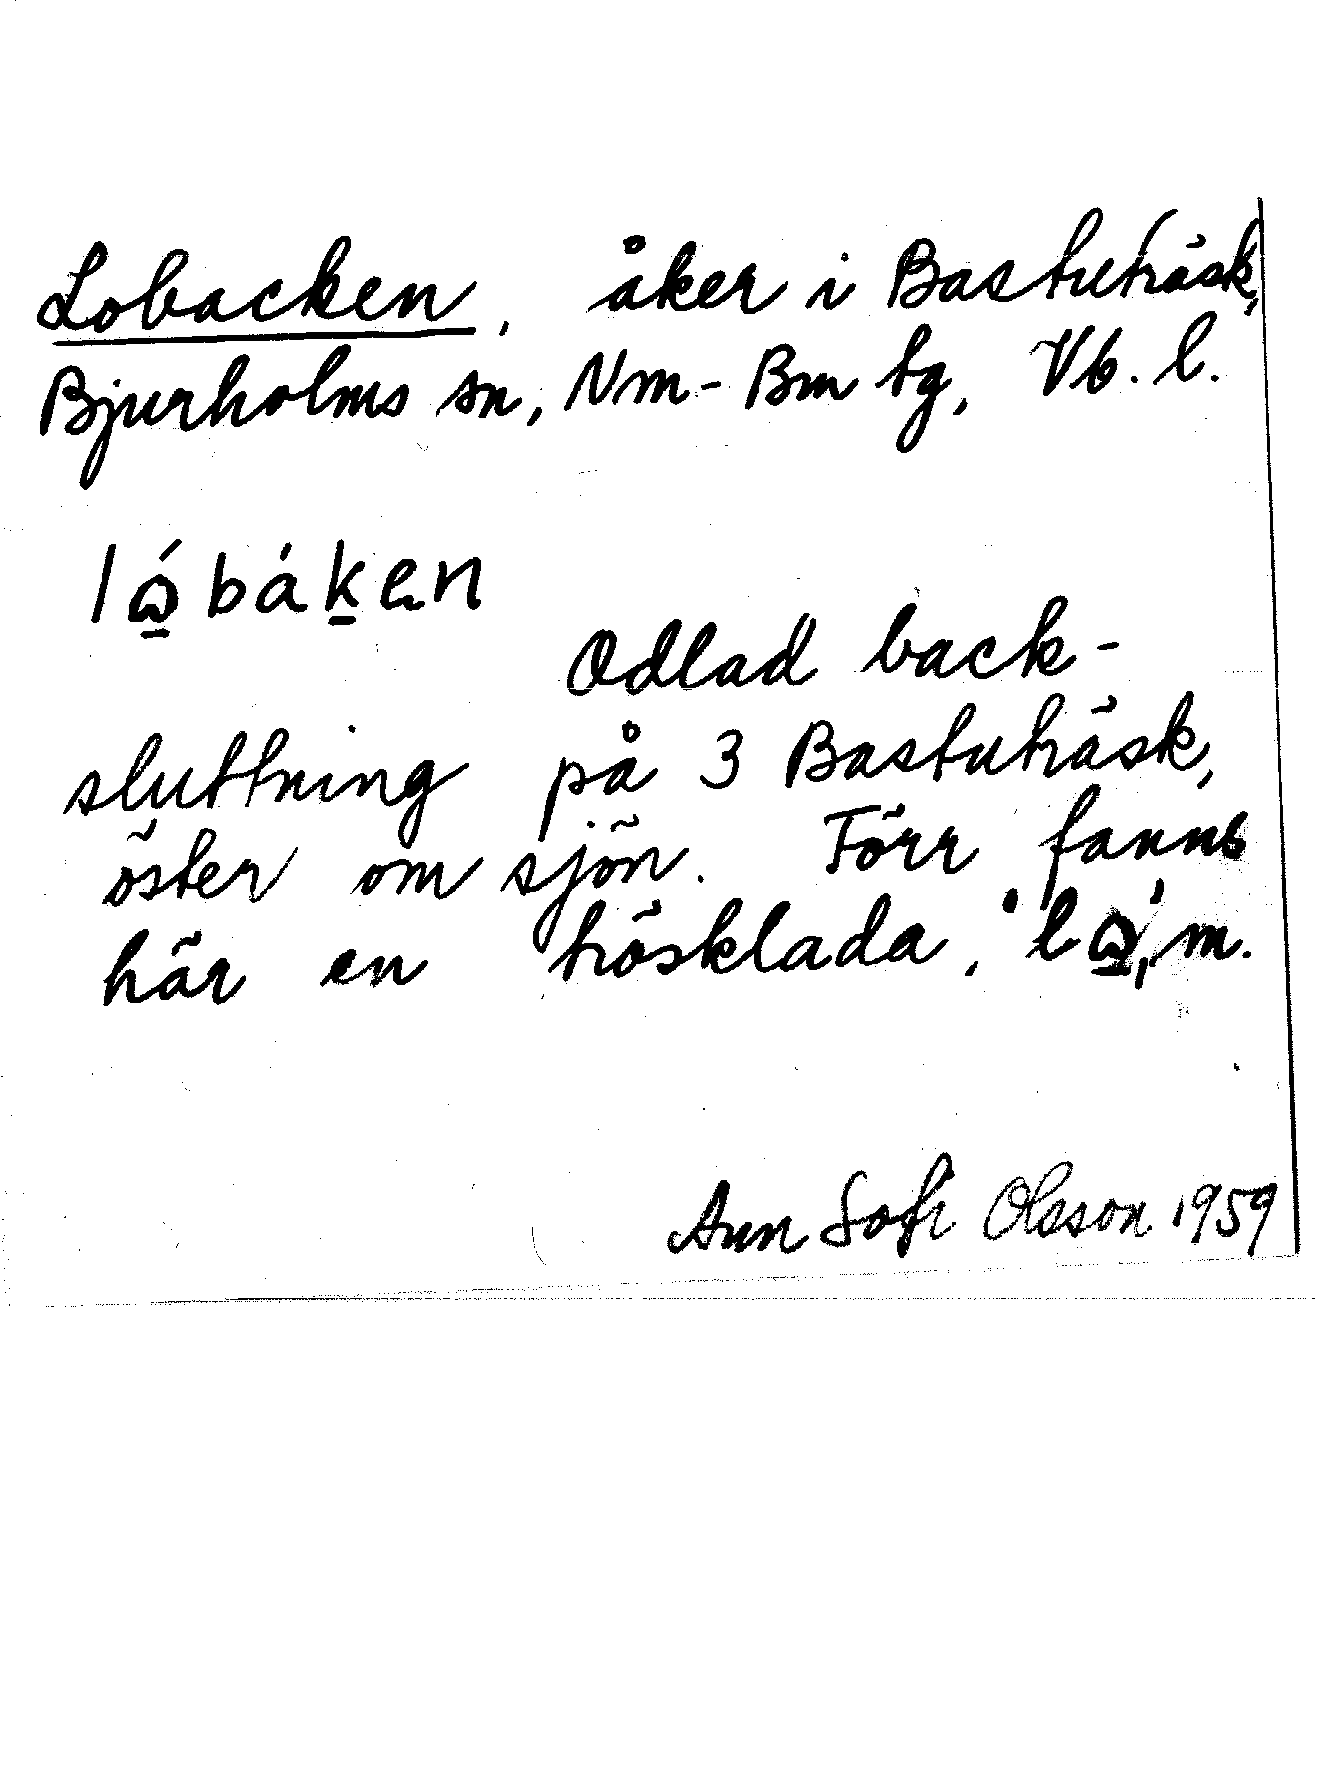 Lobacken, åker i Bastuträsk,
Bjurholms sn, Nm-Bm tg, Vb. l.
ló̱báḵen
Odlad back-
sluttning på 3 Bastuträsk,
öster om sjön. Förr fanns
här en trösklada, m.
Ann Sofi Olsson 1959